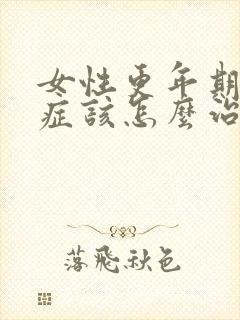 女性更年期
症該怎麼治
落飛秋色